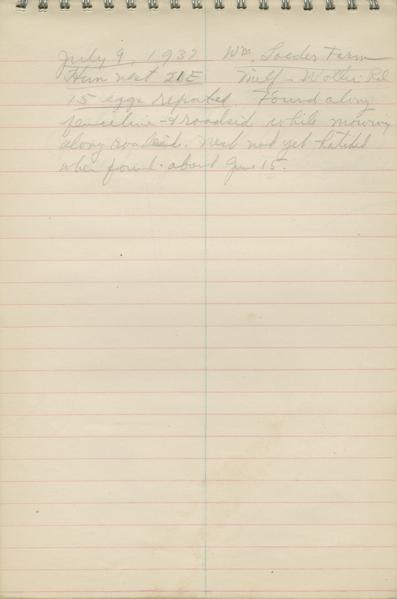 July 9, 1937 Wm. Loeder Farm
Hun nest 21E Milf - Rd
15 eggs reported Found along
fenceline - & roadsid while mowing
along roadsid. Nest not yet hatched
when found - about June 15.